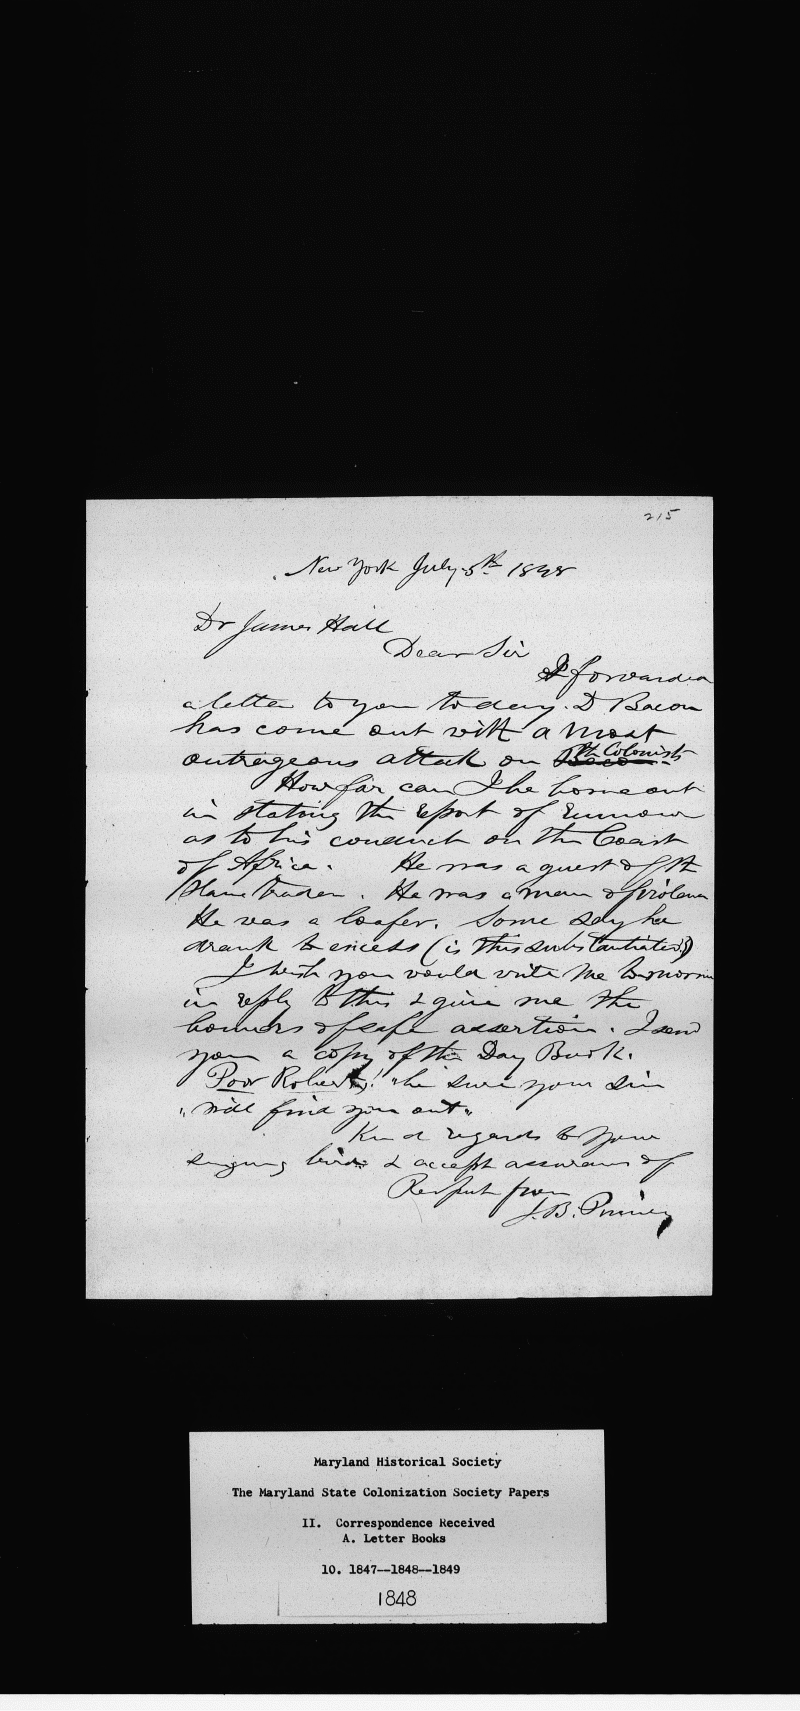 215
New York July 5th 1848
Dr James Hall
Dear Sir
I forwarded
a letter to you to day. D Bacon
has come out with a most
outrageous attack on Bacon the Colonists
How far can I be borne out
in stating the report of rumour
as to his conduct on the Coast
of Africa. He was a guest of the
Slave trader. He was a man of violence
He was a loafer. Some say he
drank to excess (is this substantiated?)
I wish you would write me tomorrow
in reply to this & give me the
bounds of safe assertion. I send
you a copy of the Day Book.
Poor Robert! "be sure your sin
"will find you out"
Kind regards to your
singing birds & accept assurance of
Respect from
J. B. Pinney
Maryland Historical Society
The Maryland State Colonization Society Papers
II. Correspondence Received
A. Letter Books
10. 1847--1848--1849
1848